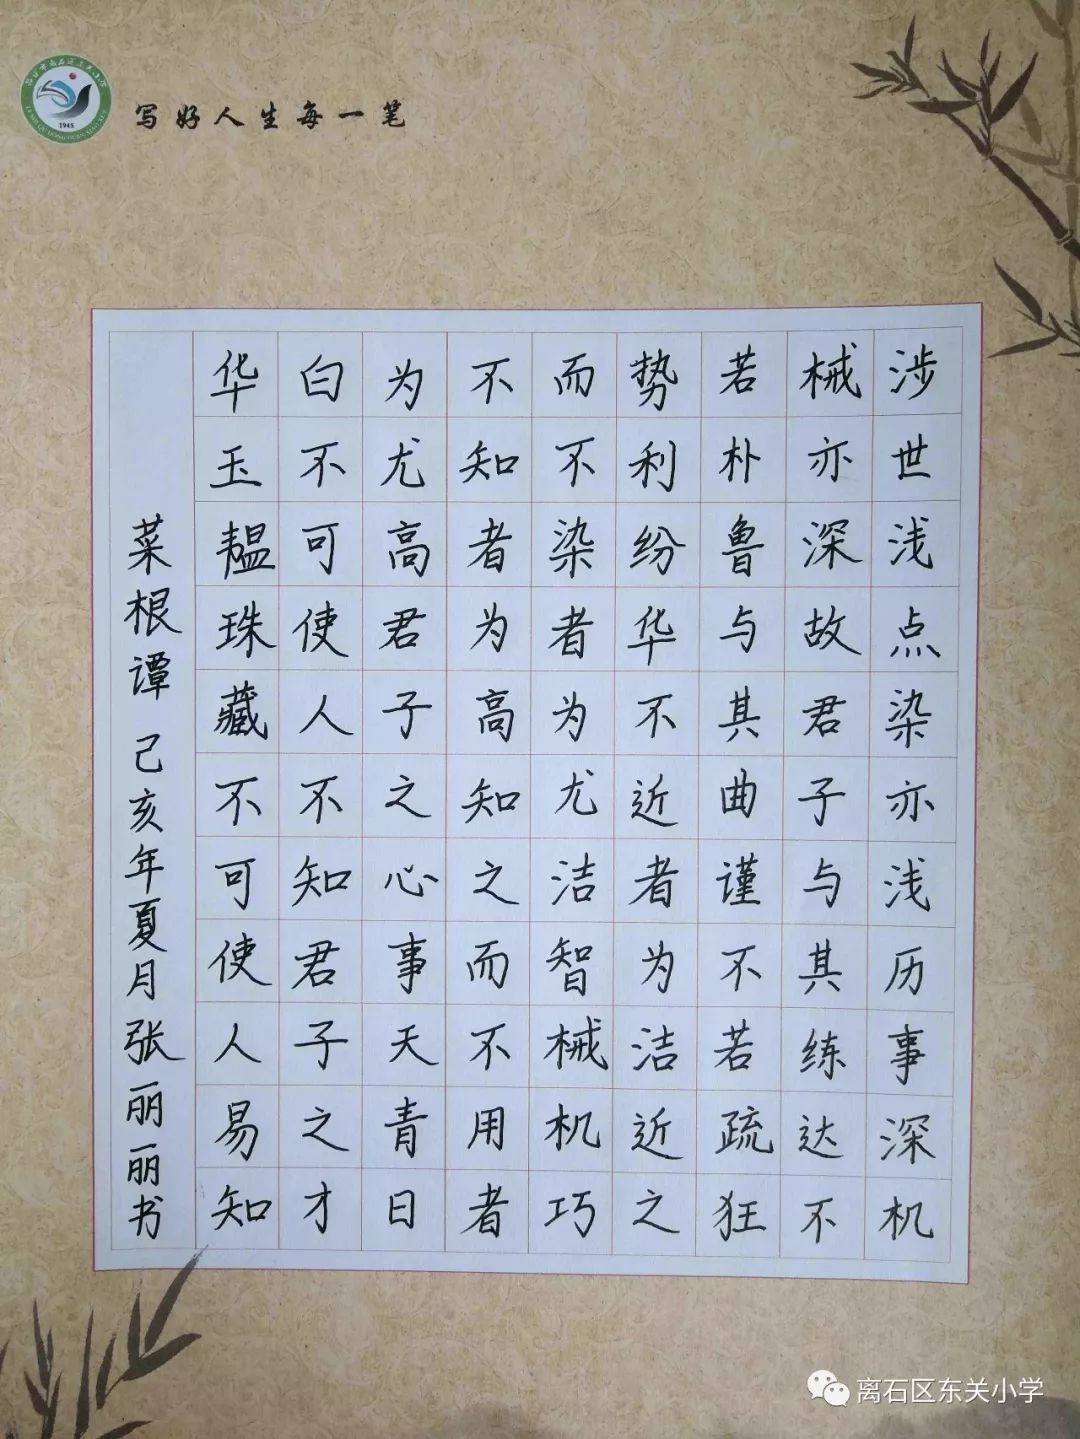 写好人生每一笔
1945
涉世浅点染亦浅历事深机
械亦深故君子与其练达不
若朴鲁与其曲谨不若疏狂
势利纷华不近者为洁近之
而不染者为尤洁智械机巧
不知者为高知之而不用者
为尤高君子之心事天青日
白不可使人不知君子之才
华玉韫珠藏不可使人易知
菜根谭 己亥年夏月 张丽丽书
离石区东关小学